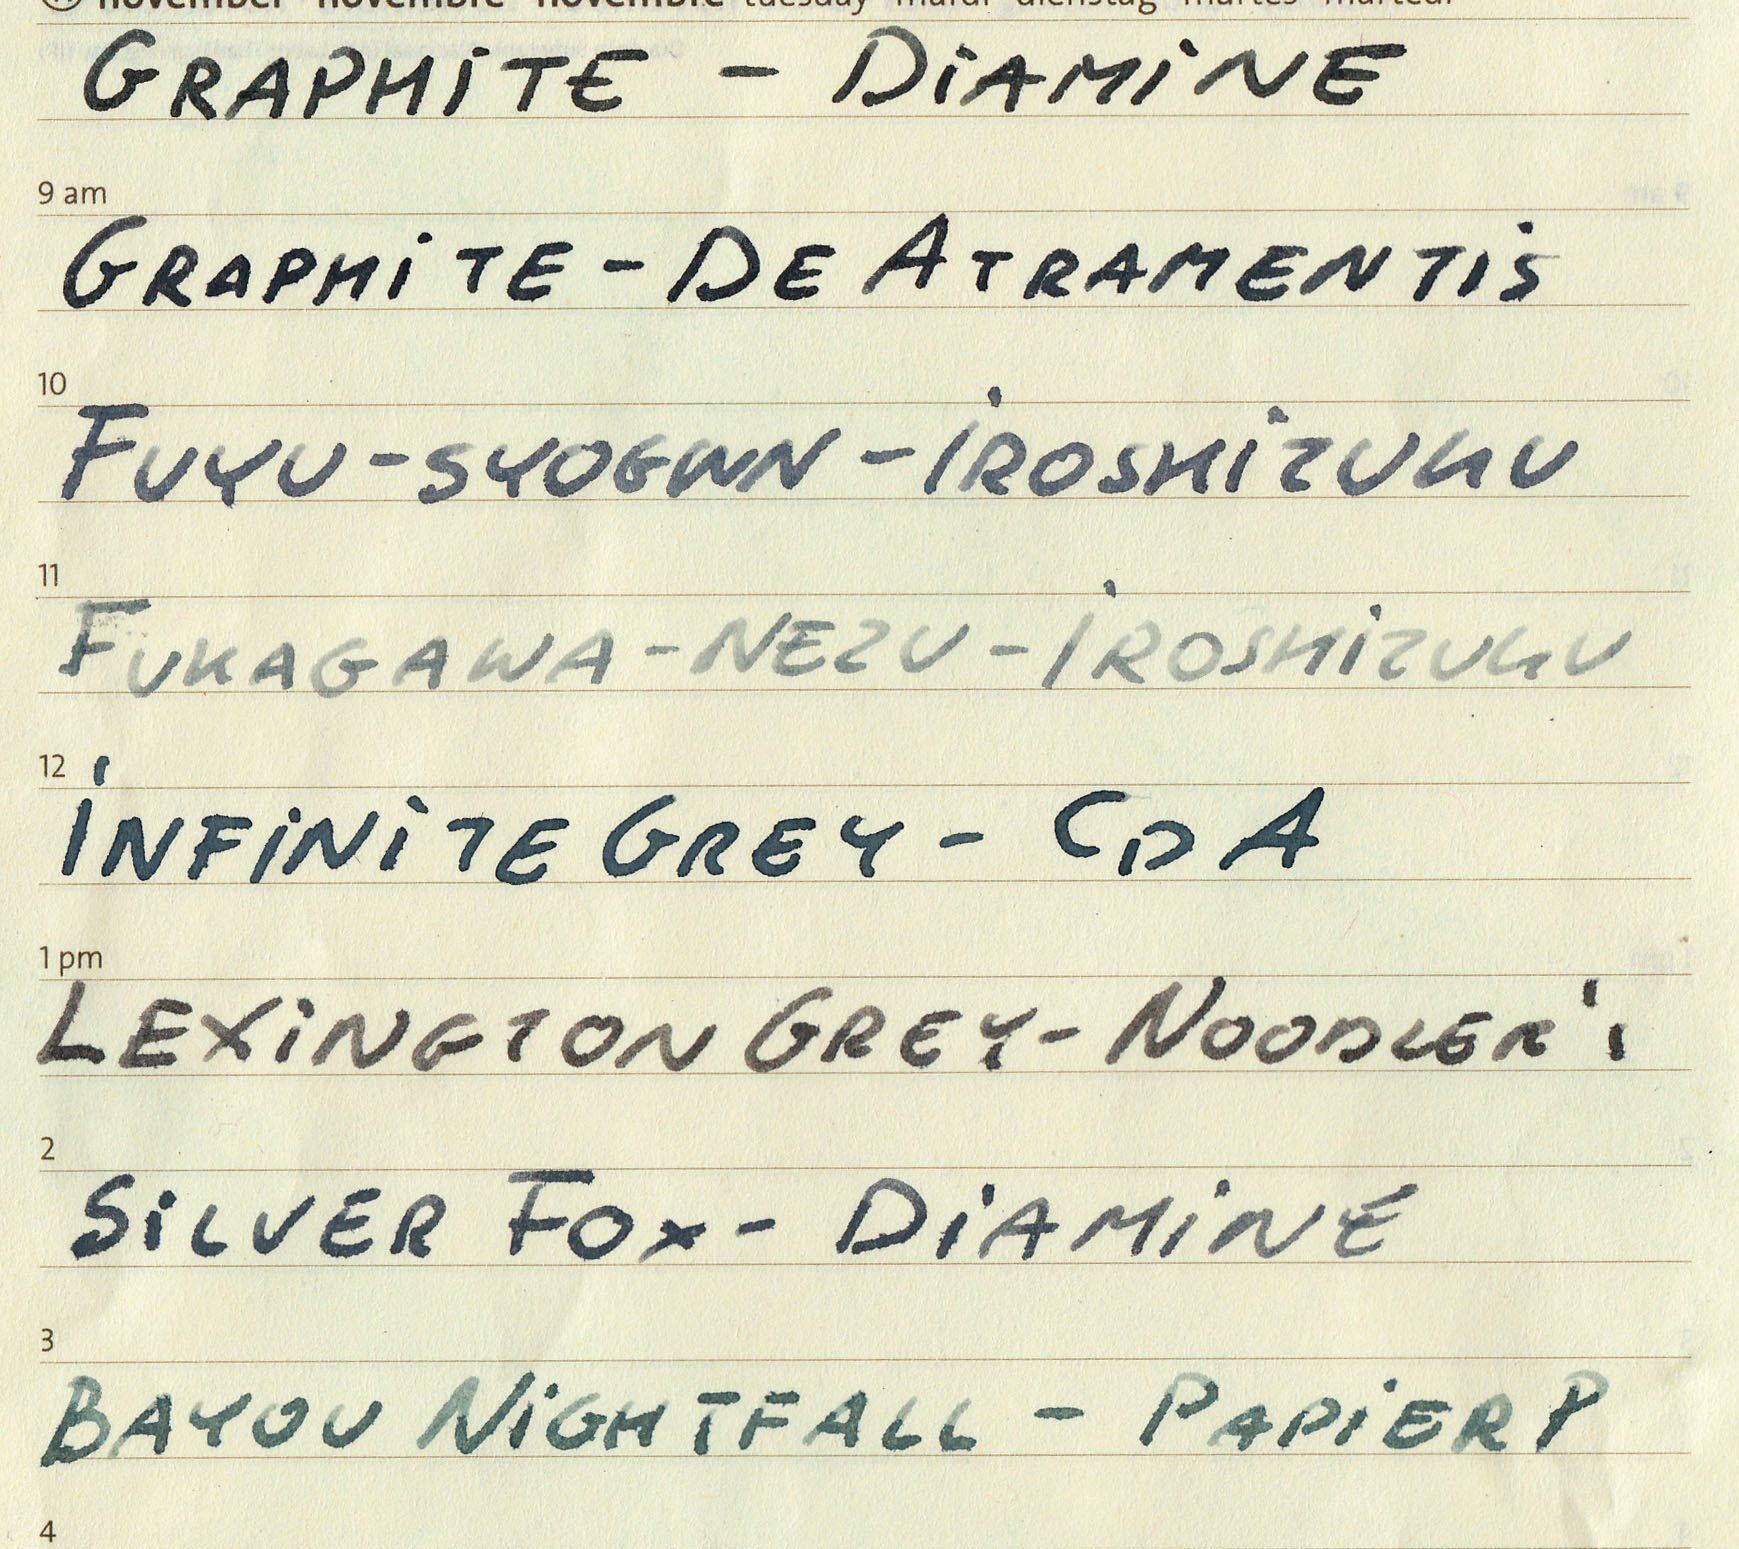 november novembre novembre tuesday mardi dienstag martes martedì
GRAPHiTE - DiAMiNE
9 am
GRAPHiTE - DE ATRAMENTiS
10
FUYU-SYOGUN - iROSHiZUKU
11
FUKAGAWA-NEZU - iROSHiZUKU
12
iNFiNiTE GREY - CDA
1 pm
LEXiNGTON GREY - NOODLER's
2
SiLVER FOX - DiAMiNE
3
BAYOU NiGHTFALL - PAPiER P
4